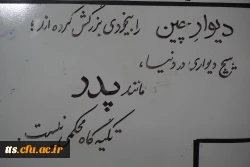 دیوار چین را بیخودی بزرگش کرده اند؛
هیچ دیواری در دنیا،
مانند پدر
تکیه گاه محکمی نیست
its.cfu.ac.ir